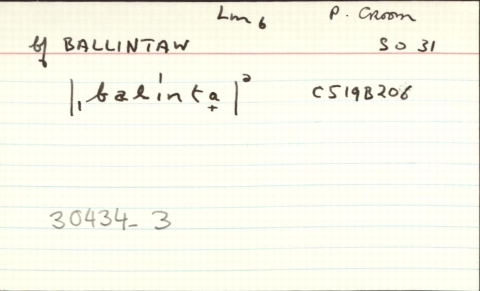 Lm 6 P. Croom
bf BALLINTAW SO 31
|ˌbalˈinta̟|² C519B206
30434_3